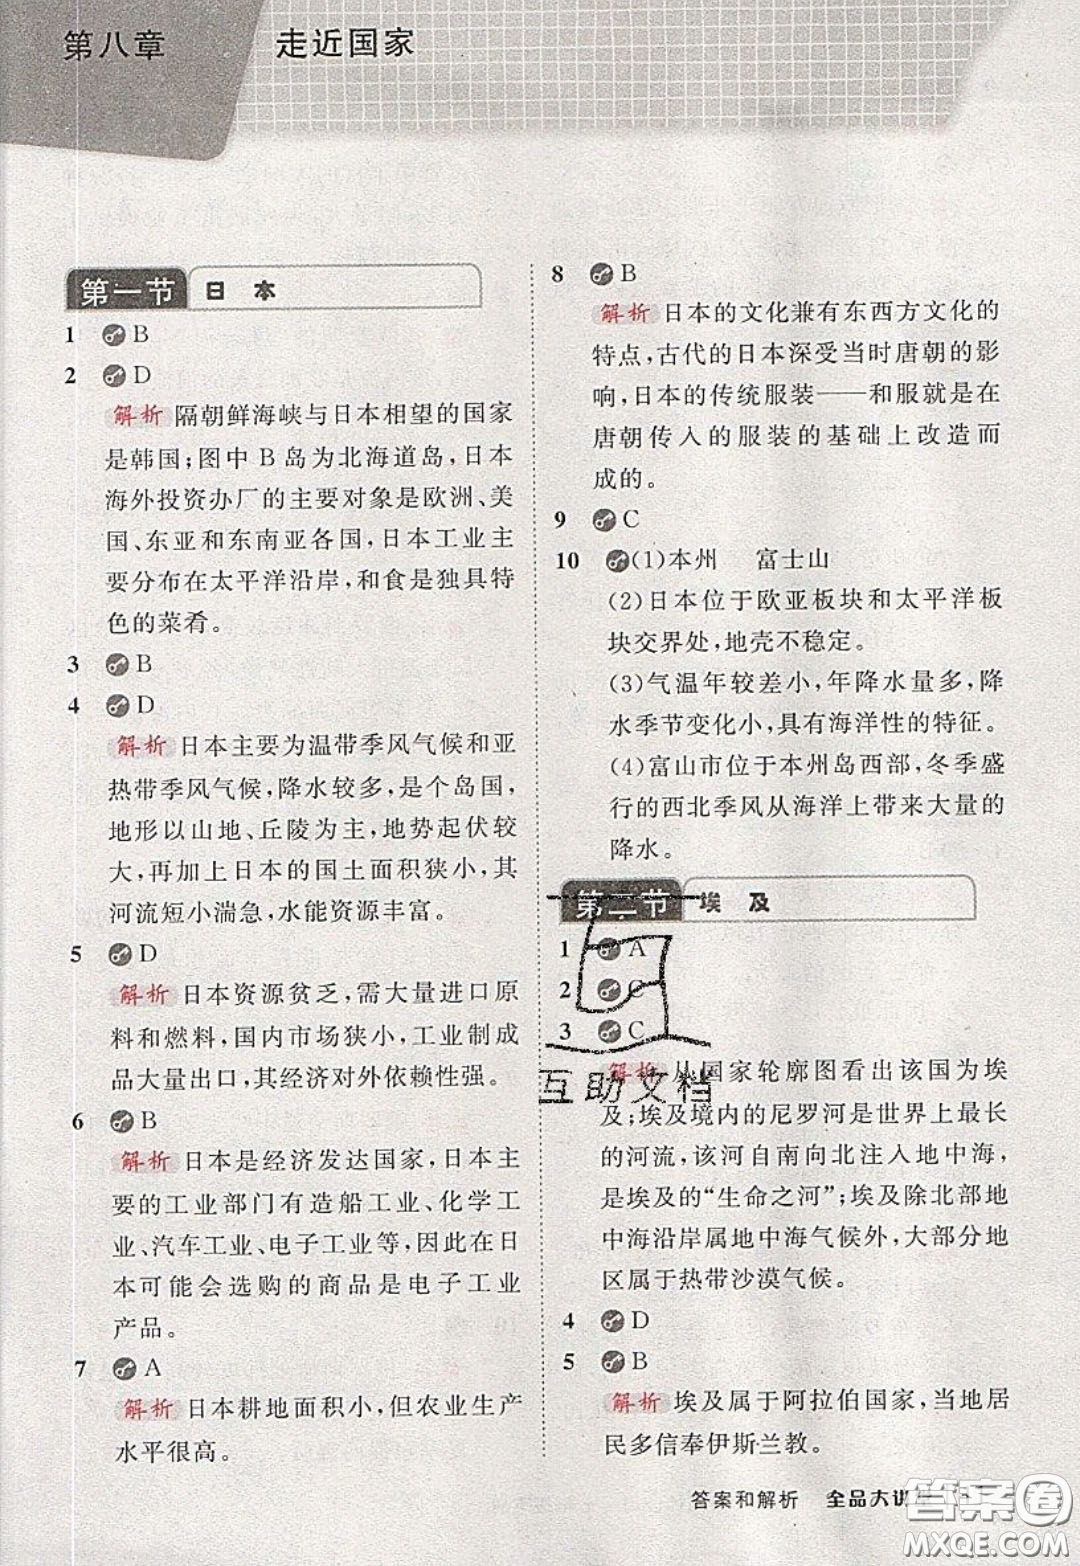 第八章 走近国家
第一节 日 本
1 B
2 D
解析 隔朝鲜海峡与日本相望的国家
是韩国;图中B岛为北海道岛,日本
海外投资办厂的主要对象是欧洲、美
国、东亚和东南亚各国,日本工业主
要分布在太平洋沿岸,和食是独具特
色的菜肴。
3 B
4 D
解析 日本主要为温带季风气候和亚
热带季风气候,降水较多,是个岛国,
地形以山地、丘陵为主,地势起伏较
大,再加上日本的国土面积狭小,其
河流短小湍急,水能资源丰富。
5 D
解析 日本资源贫乏,需大量进口原
料和燃料,国内市场狭小,工业制成
品大量出口,其经济对外依赖性强。
6 B
解析 日本是经济发达国家,日本主
要的工业部门有造船工业、化学工
业、汽车工业、电子工业等,因此在日
本可能会选购的商品是电子工业
产品。
7 A
解析 日本耕地面积小,但农业生产
水平很高。
8 B
解析 日本的文化兼有东西方文化的
特点,古代的日本深受当时唐朝的影
响,日本的传统服装——和服就是在
唐朝传入的服装的基础上改造而
成的。
9 C
10 (1)本州 富士山
(2)日本位于欧亚板块和太平洋板
块交界处,地壳不稳定。
(3)气温年较差小,年降水量多,降
水季节变化小,具有海洋性的特征。
(4)富山市位于本州岛西部,冬季盛
行的西北季风从海洋上带来大量的
降水。
第二节 埃 及
1 A
2 C
3 C
解析 从国家轮廓图看出该国为埃
及;埃及境内的尼罗河是世界上最长
的河流,该河自南向北注入地中海,
是埃及的“生命之河”;埃及除北部地
中海沿岸属地中海气候外,大部分地
区属于热带沙漠气候。
4 D
5 B
解析 埃及属于阿拉伯国家,当地居
民多信奉伊斯兰教。
互助文档
答案和解析 全品大讲
答案圈
MXQE.COM